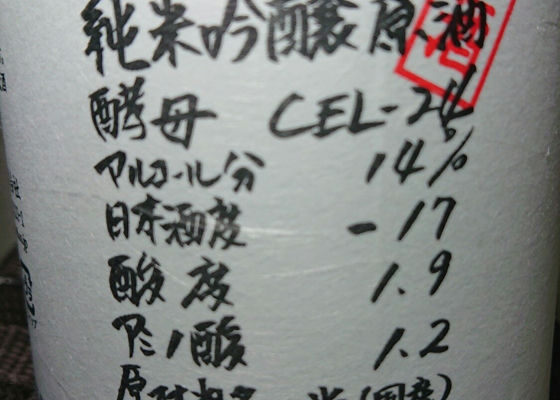 純米吟醸原酒
酵母 CEL-24
アルコール分 14%
日本酒度 -17
酸度 1.9
アミノ酸 1.2
原材料名 米(国産)